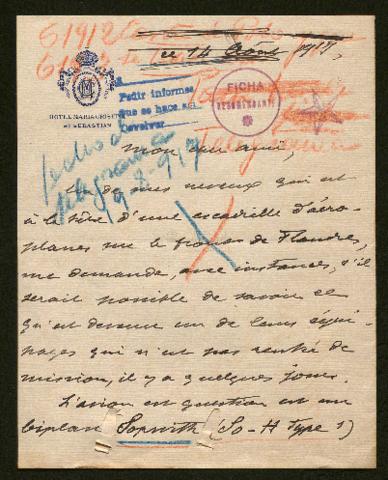 61912
HOTEL MARIA CRISTINA
Sn SEBASTIAN
ce 14 Août 1917,
Pedir informes
que se hace así
Devolver
FICHA
Telegrama
Mon cher ami,
Un de mes neveux qui est
à la tête d'une escadrille d'aéro-
planes sur le front de Flandres,
me demande, avec instances, s'il
serait possible de savoir ce
qu'est devenu un de leurs équi-
pages qui n'est pas rentré de
mission, il y a quelques jours.
L'avion en question est un
biplan Sopwith (So-H Type 1)